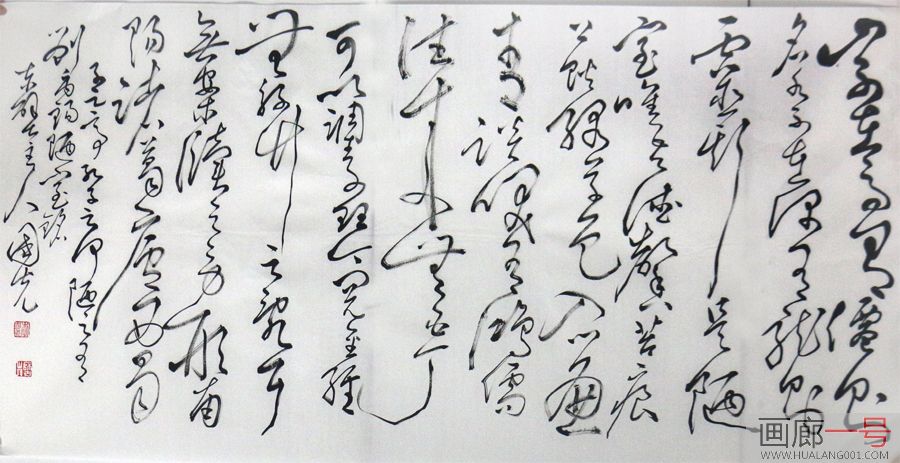 山不在高有僊則
名水不在深有龍則
靈斯是陋
室唯吾德馨苔痕
上階綠草色入簾
青談笑有鴻儒
往來無白丁
可以調素琴閱金經
無絲竹之亂耳
無案牘之勞形南
陽諸葛廬西蜀
子雲亭孔子云何陋之有
劉禹錫陋室銘
主人國光
画廊一号
WWW.HUALANG001.COM